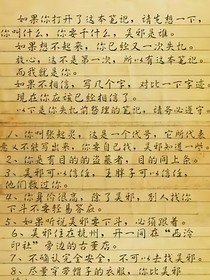 如果你打开了这本笔记,请先想一下,
你叫什么,你要干什么,吴邪是谁。
如果想不起来,你已经又一次失忆。
放心,这不是第一次,所以有这本笔记。
而我就是你。
如果不相信,写几个字,对比一下字迹
现在你应该已经相信了。
以下是你失忆前整理的笔记,请务必遵守
1、你叫张起灵,这是一个代号,它所代表
意义不能写出来,你要自己找,吴邪知道一些
2、你是有目的的盗墓者,目的同上条。
3、吴邪可以信任,王胖子可以信任,
他们救过你。
4、你身价很高,除了吴邪,别人找你
下斗不要轻易答应。
5、如果听说吴邪要下斗,必须跟着。
6、吴邪住在杭州,开一间在“西泠
印社”旁边的古董店。
7、不确认完全安全,不可以去找吴邪
8、尽量穿带帽子的衣服,你比吴邪